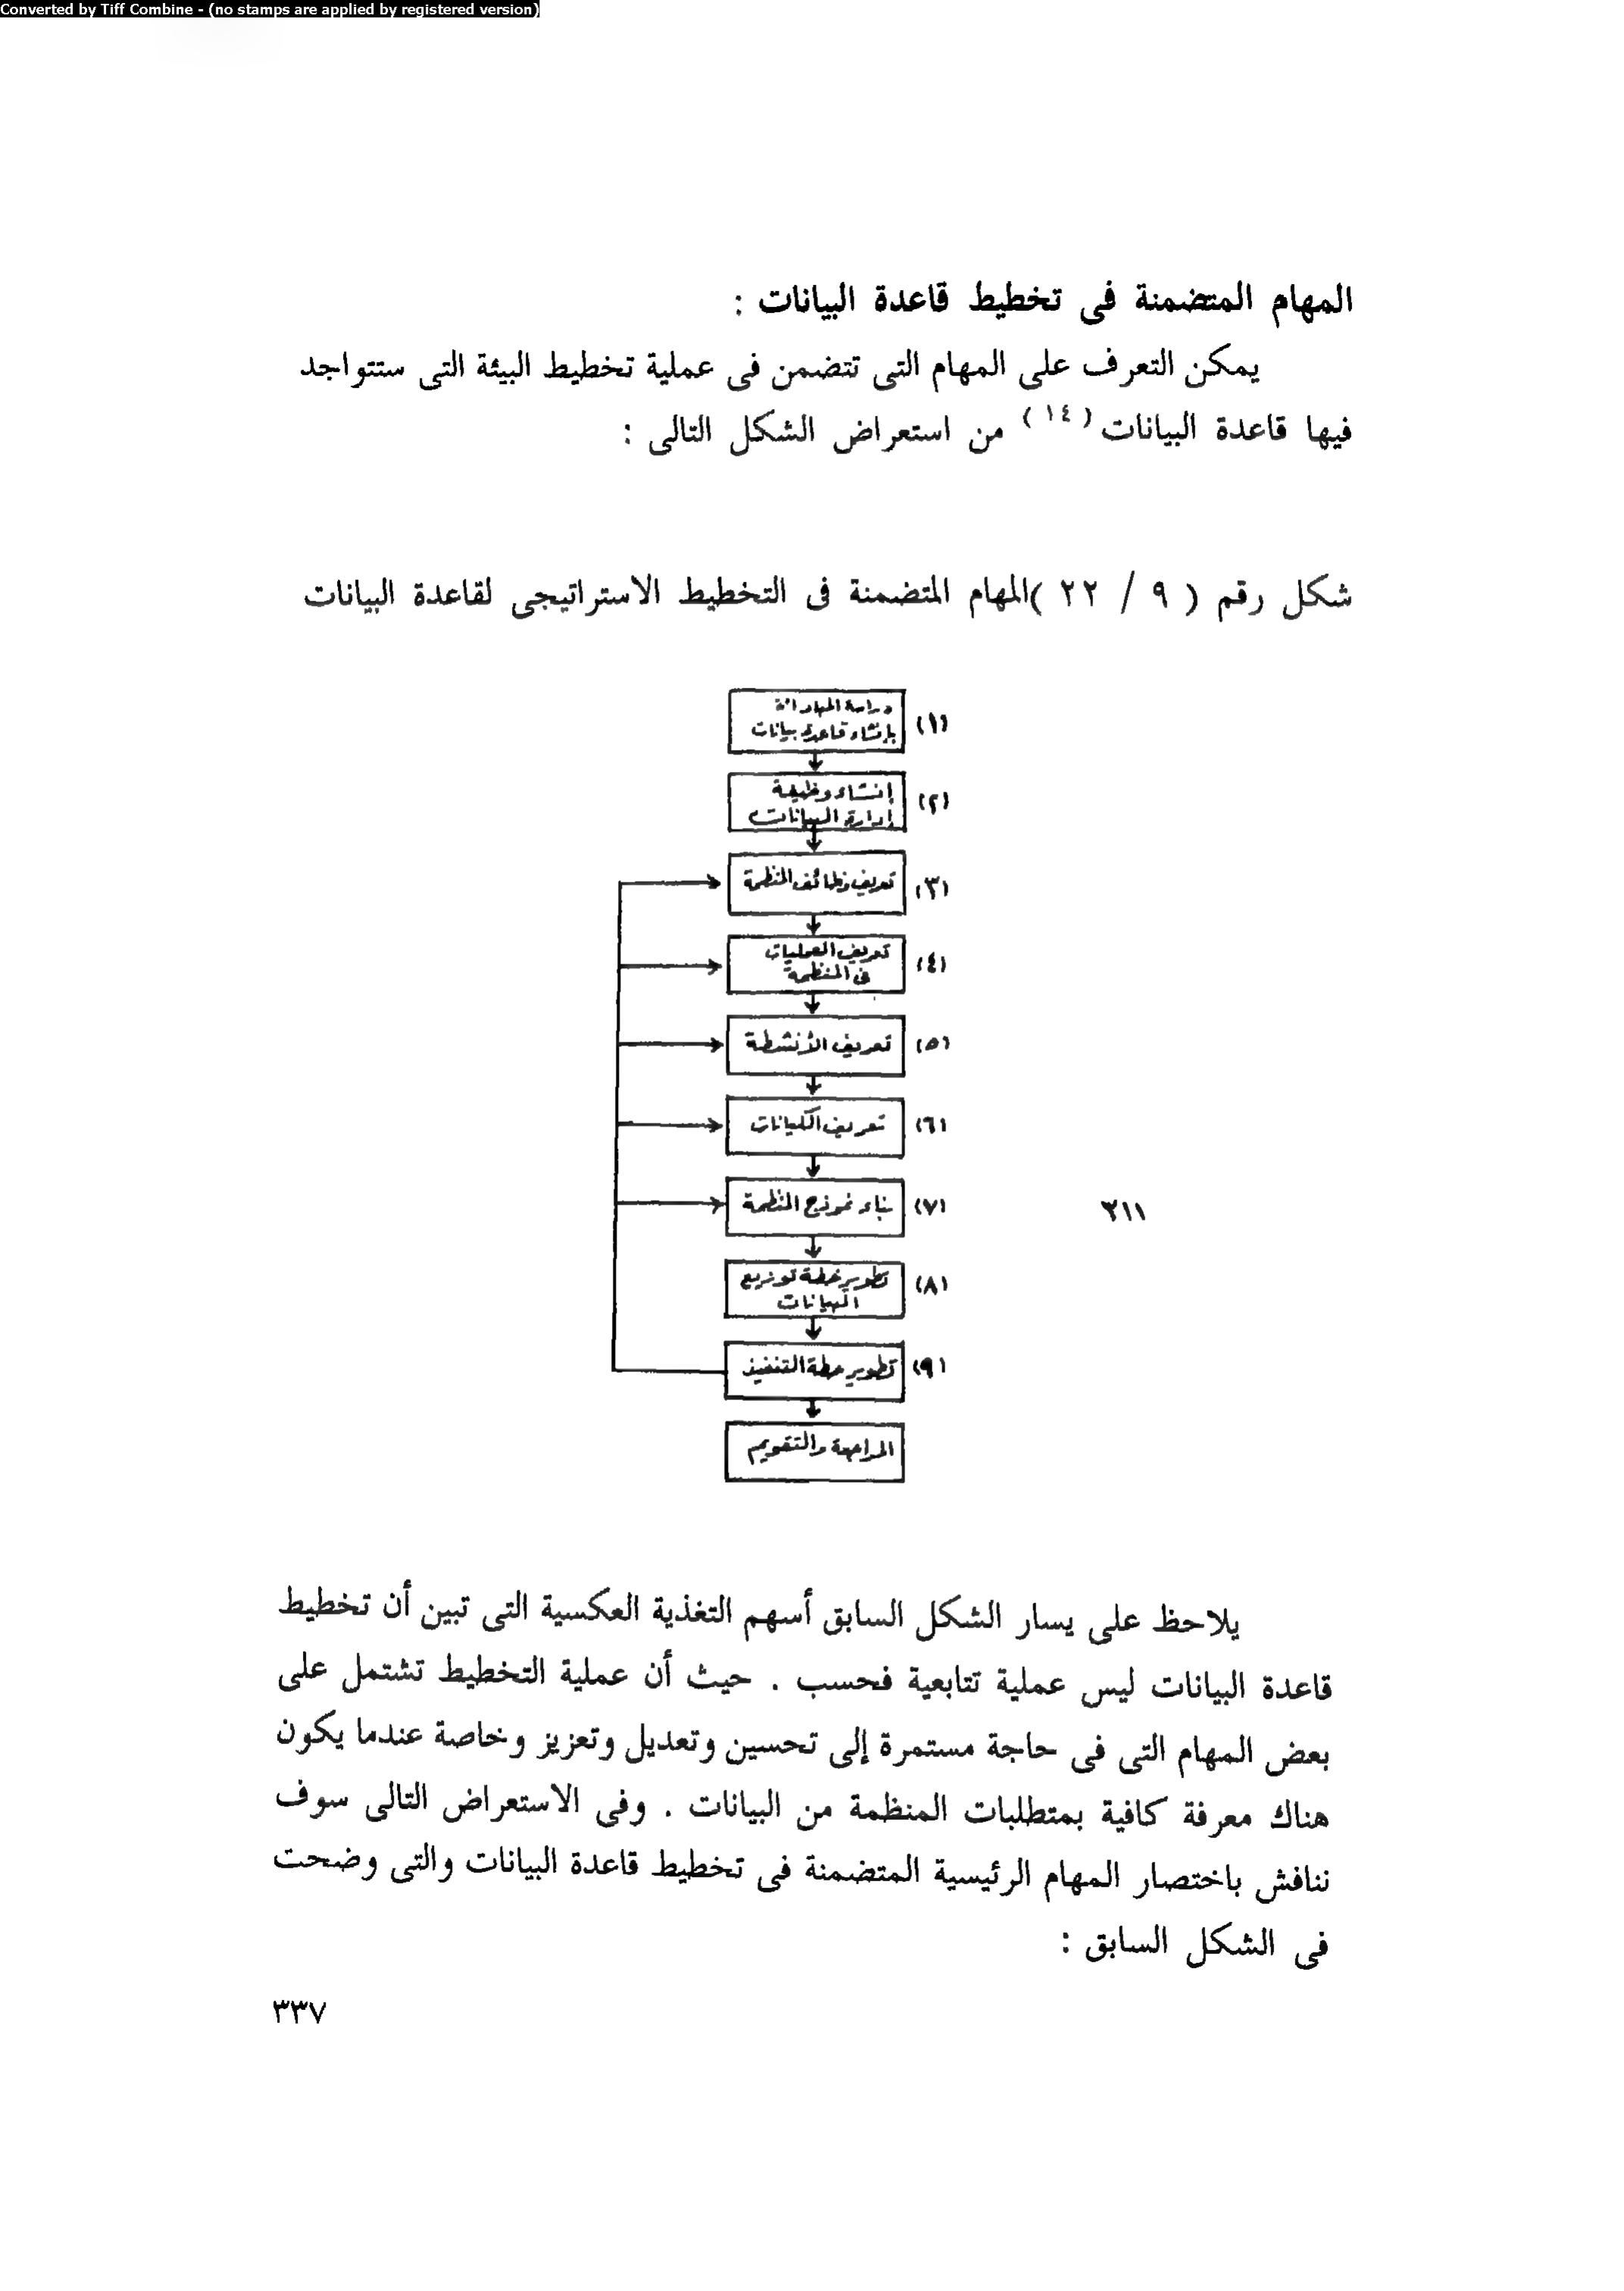 Converted by Tiff Combine - (no stamps are applied by registered version)
المهام المتضمنة فى تخطيط قاعدة البيانات :
يمكن التعرف على المهام التى تتضمن فى عملية تخطيط البيئة التى ستتواجد
فيها قاعدة البيانات (١٤) من استعراض الشكل التالى :
شكل رقم ( ٩ / ٢٢ ) المهام المتضمنة فى التخطيط الاستراتيجى لقاعدة البيانات
(١) دراسة المبادأة
بإنشاء قاعدة بيانات
(٢) إنشاء وظيفة
إدارة البيانات
(٣) تعريف وظائف المنظمة
(٤) تعريف العمليات
فى المنظمة
(٥) تعريف الأنشطة
(٦) تعريف الكيانات
(٧) بناء نموذج المنظمة
٣١١
(٨) تطوير خطة توزيع
البيانات
(٩) تطوير خطة التنفيذ
المراجعة والتقويم
يلاحظ على يسار الشكل السابق أسهم التغذية العكسية التى تبين أن تخطيط
قاعدة البيانات ليس عملية تتابعية فحسب . حيث أن عملية التخطيط تشتمل على
بعض المهام التى فى حاجة مستمرة إلى تحسين وتعديل وتعزيز وخاصة عندما يكون
هناك معرفة كافية بمتطلبات المنظمة من البيانات . وفى الاستعراض التالى سوف
ننافش باختصار المهام الرئيسية المتضمنة فى تخطيط قاعدة البيانات والتى وضحت
فى الشكل السابق :
٣٣٧